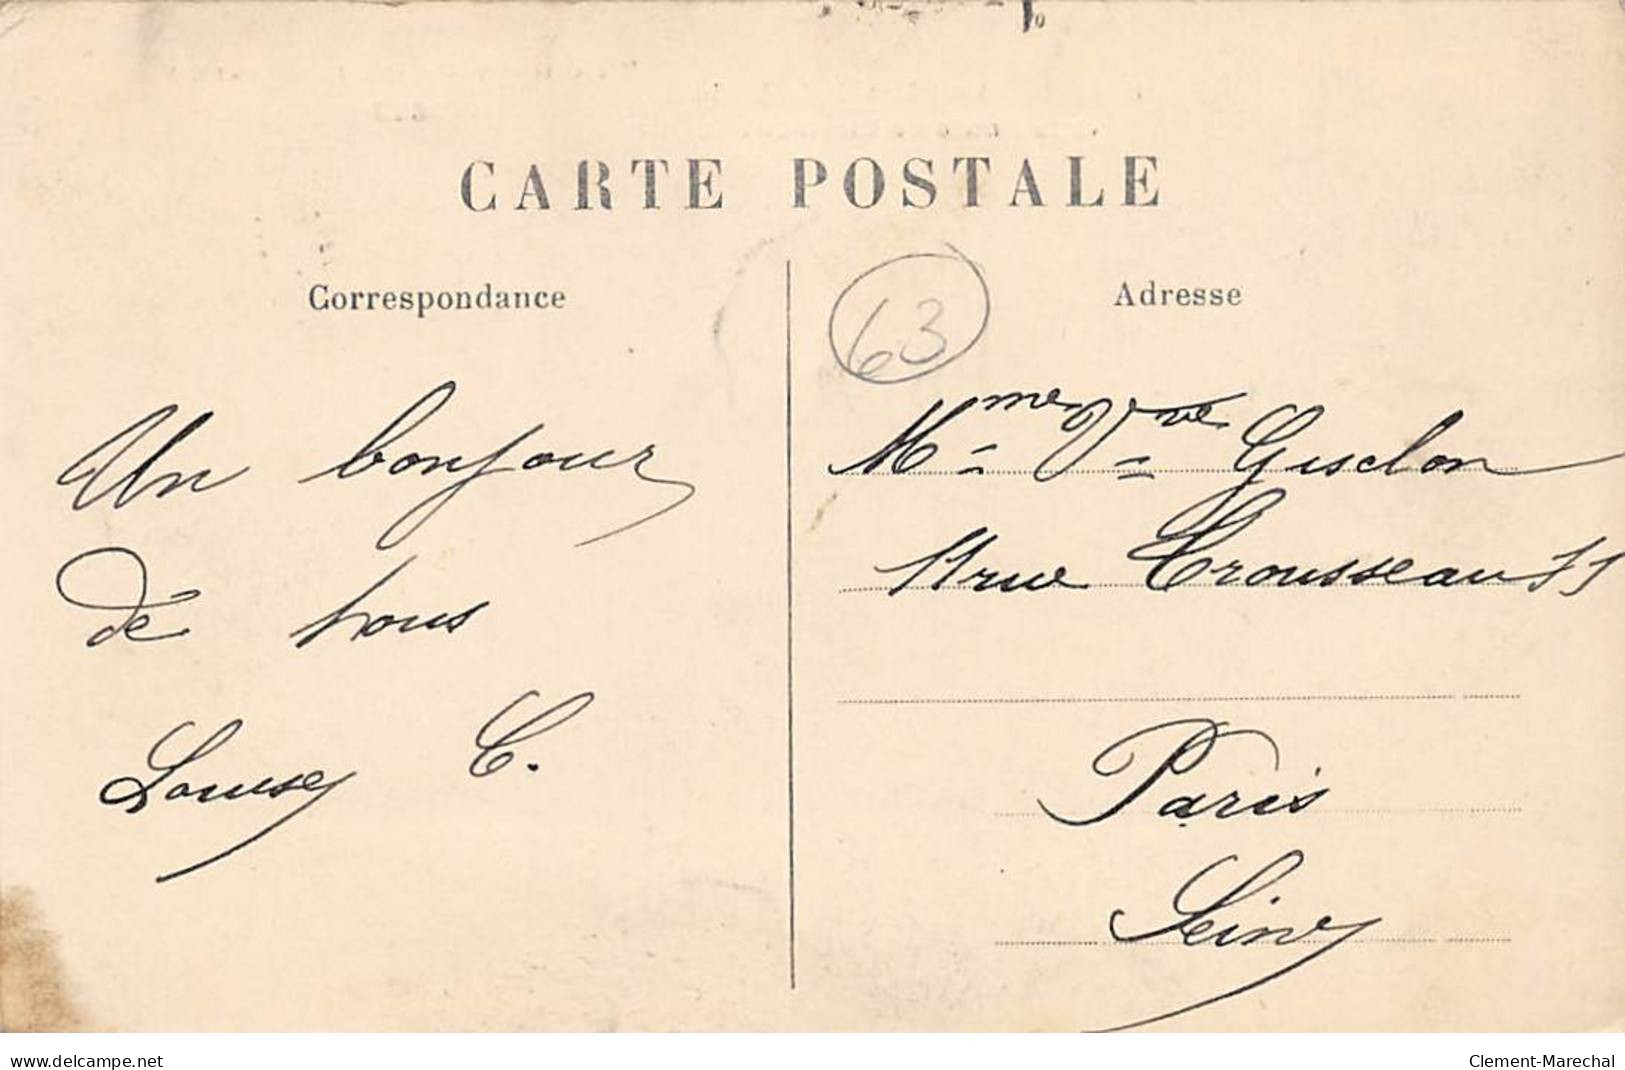 CARTE POSTALE
Correspondance
Un bonjour
de nous
Louise C.
63
Adresse
Mme Vve Giselon
11 rue Trousseau 11
Paris
Seine
www.delcampe.net
Clement-Marechal